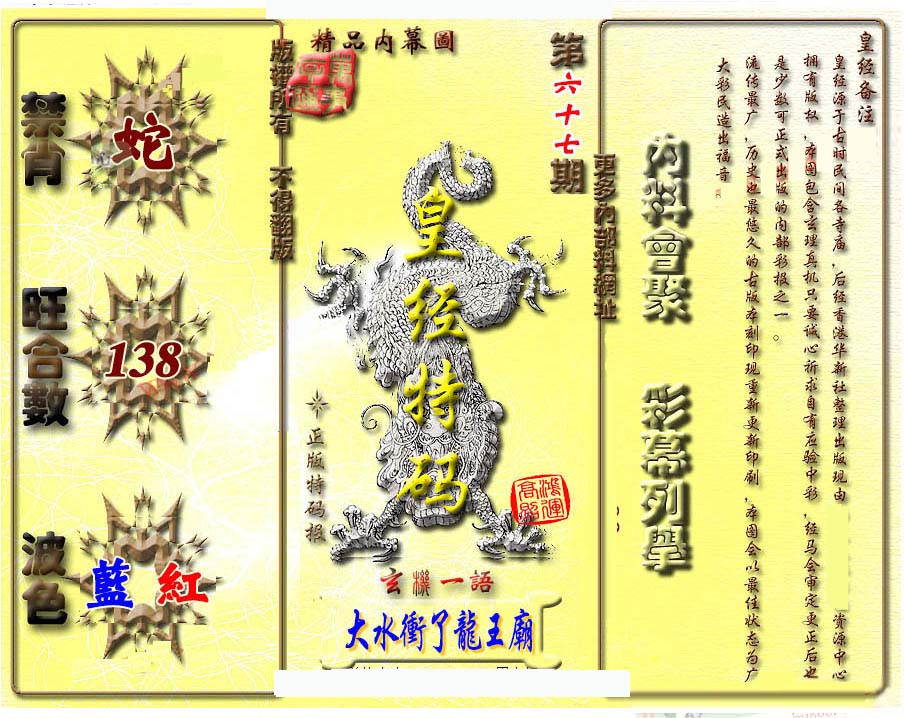 精品內幕圖
版權所有 不得翻版
第六十七期
更多內部料網址
禁肖
蛇
旺合數
138
波色
藍 紅
皇经特码
正版特码报
鴻運
高照
玄機一語
大水衝了龍王廟
內料會聚
彩幕列舉
皇经备注
皇经源于古时民间各寺庙,后经香港华新社整理出版现由 资源中心
拥有版权,本图包含玄理真机只要诚心祈求自有应验中彩,经马会审定更正后也
是少数可正式出版的内部彩报之一。
流传最广,历史也最悠久的古版本刻印现重新更新印刷,本图会以最佳状态为广
大彩民造出福音